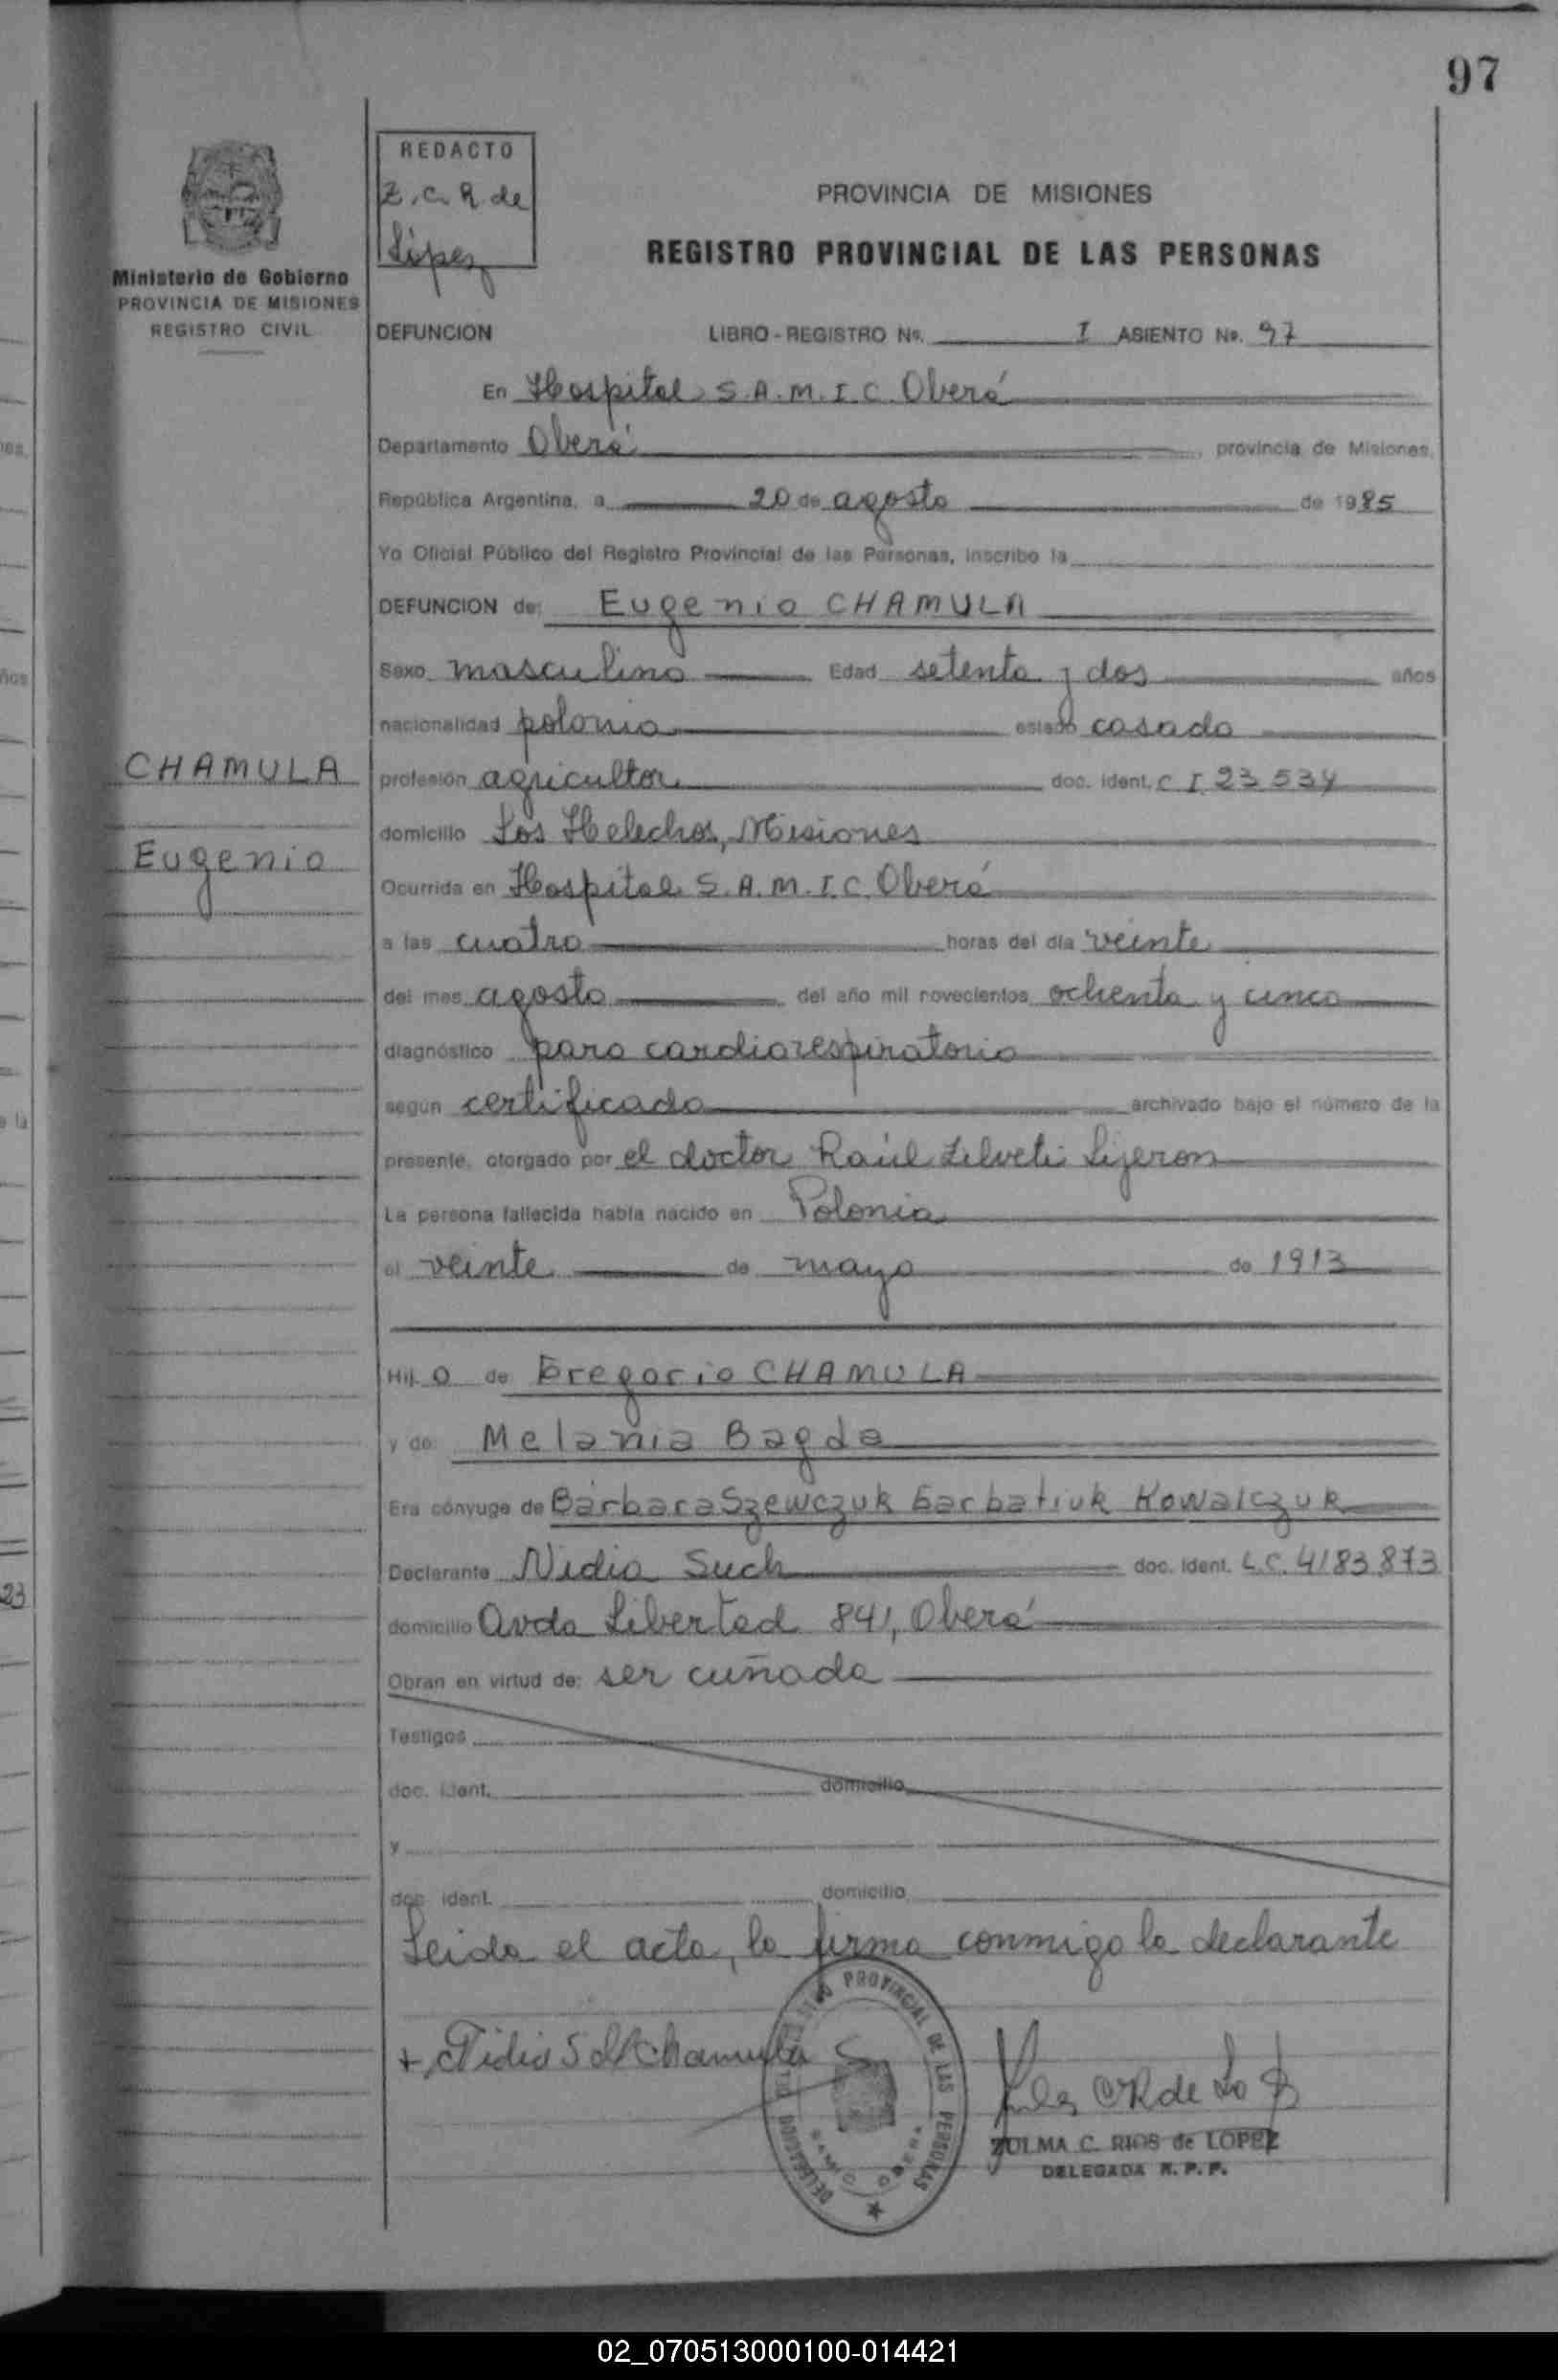 97
REDACTO
Z. C. R. de
López
Ministerio de Gobierno
PROVINCIA DE MISIONES
REGISTRO CIVIL
PROVINCIA DE MISIONES
REGISTRO PROVINCIAL DE LAS PERSONAS
DEFUNCION LIBRO - REGISTRO No. I ASIENTO No. 97
En Hospital S.A.M.I.C. Oberá
Departamento Oberá provincia de Misiones,
República Argentina, a 20 de agosto de 1985
Yo Oficial Público del Registro Provincial de las Personas, inscribo la
DEFUNCION de: Eugenio CHAMULA
Sexo masculino Edad setenta y dos años
nacionalidad polonia estado casado
CHAMULA
Eugenio
profesión agricultor doc. ident. C I 23 534
domicilio Los Helechos, Misiones
Ocurrida en Hospital S.A.M.I.C. Oberá
a las cuatro horas del día veinte
del mes agosto del año mil novecientos ochenta y cinco
diagnóstico paro cardiorespiratorio
según certificado archivado bajo el número de la
presente, otorgado por el doctor Raúl Zilveti Lijeron
La persona fallecida había nacido en Polonia
el veinte de mayo de 1913
Hij o de Gregorio CHAMULA
y de Melania Bagda
Era cónyuge de Bárbara Szewczuk Garbatiuk Kowalczuk
Declarante Nidia Such doc. ident. L.C. 4183873
domicilio Avda Libertad 841, Oberá
Obran en virtud de: ser cuñada
Testigos
doc. ident. domicilio
y
doc. ident. domicilio
Leida el acta, la firma conmigo la declarante
+ Nidia S de Chamula
REGISTRO PROVINCIAL DE LAS PERSONAS
DELEGACION
OBERA
ZULMA C. RIOS de LOPEZ
DELEGADA R. P. P.
23
02_070513000100-014421